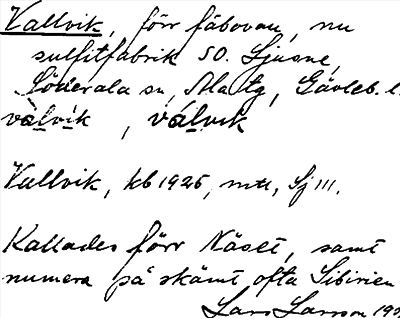 Vallvik, förr fäbovall, nu
sulfitfabrik SO. Ljusne,
Söderala sn, Ala tg, Gävleb. l.
vàlvik , válvik
Vallvik, kb 1925, mtl, Sj 111.
Kallades förr Näset, samt
numera på skämt ofta Sibirien
Lars Larsson